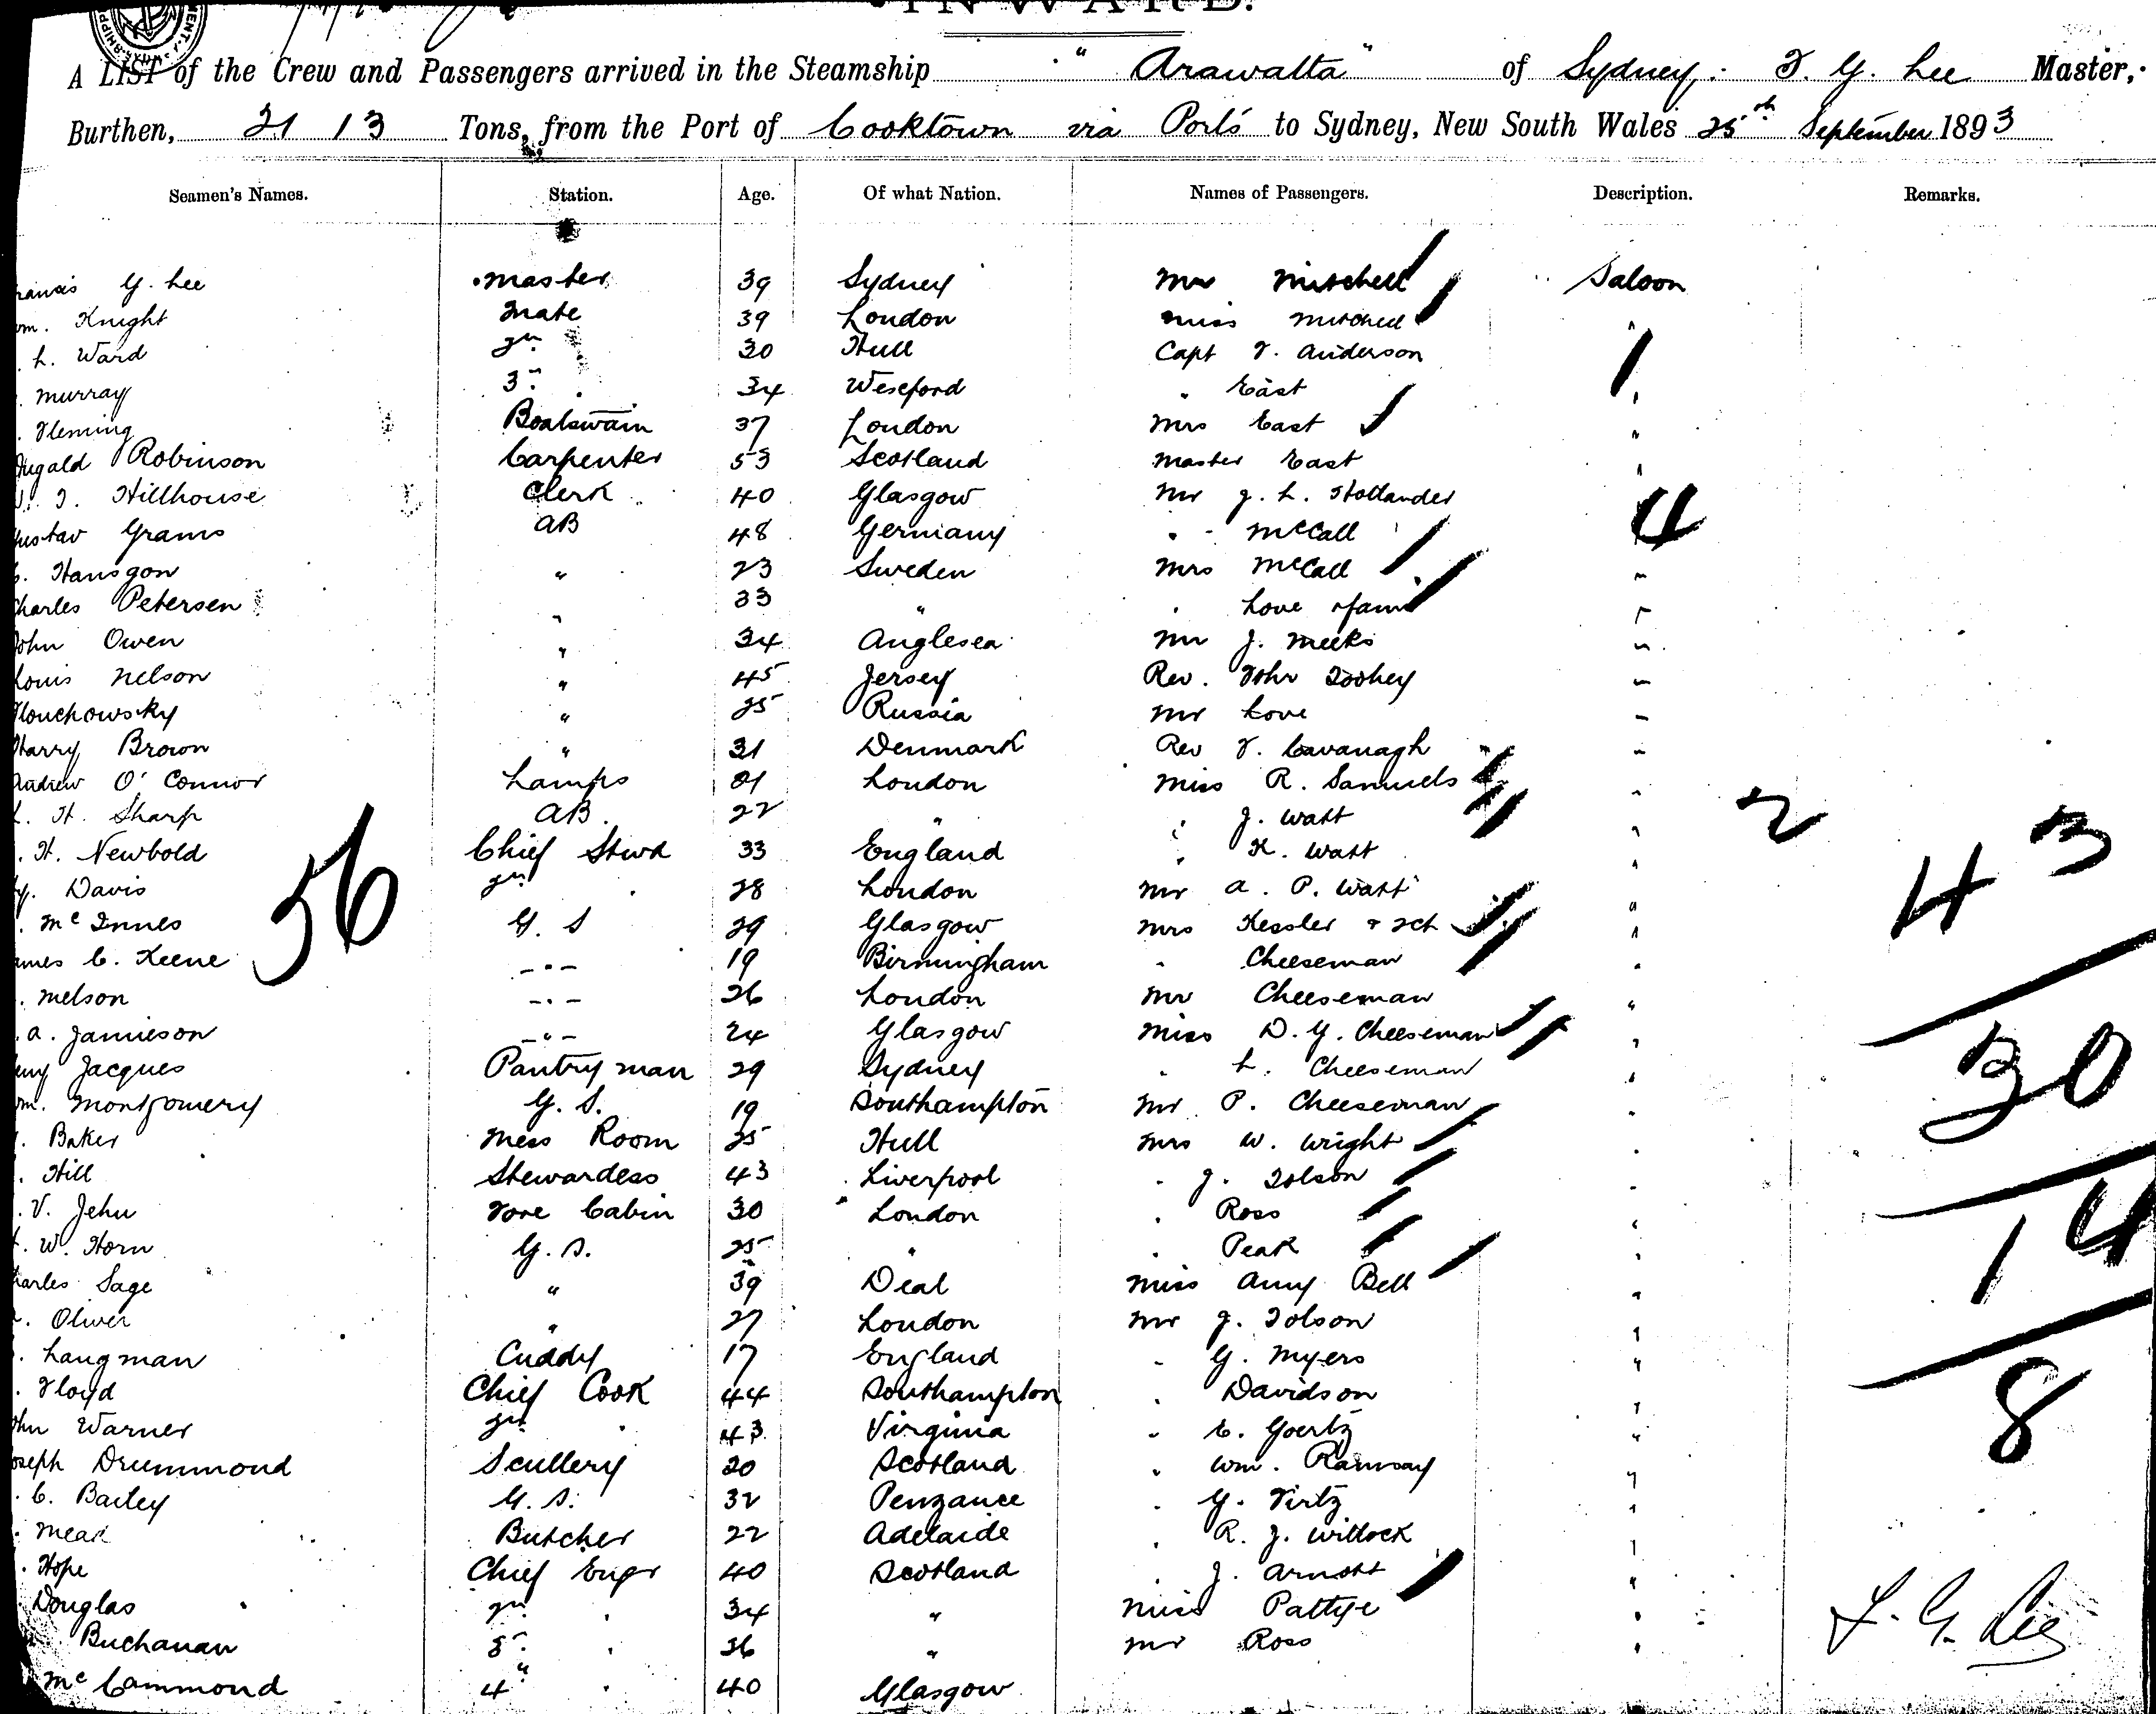 INWARD.
A LIST of the Crew and Passengers arrived in the Steamship "Arawatta" of Sydney. F. G. Lee Master,
Burthen, 2113 Tons, from the Port of Cooktown via Ports to Sydney, New South Wales 25th September 1893
Seamen's Names. Station. Age. Of what Nation. Names of Passengers. Description. Remarks.
rancis G. Lee Master 39 Sydney Mrs Mitchell Saloon
m. Knight Mate 39 London Miss Mitchell "
L. Ward 2nd 30 Hull Capt F. Anderson
Murray 3rd 34 Wexford " East "
Fleming Boatswain 37 London Mrs East "
ugald Robinson Carpenter 53 Scotland Master East "
T. Hillhouse Clerk 40 Glasgow Mr J. L. Hollander 4
ustav Grams AB 48 Germany " McCall
Hansgon " 23 Sweden Mrs McCall "
Charles Petersen " 33 " " Love "
John Owen " 34 Anglesea Mr J. Meeks "
Louis Nelson " 45 Jersey Rev. John Toohey "
Glouchowsky " 25 Russia Mr Love "
Harry Brown " 31 Denmark Rev F. Cavanagh "
Andrew O'Connor Lamps 21 London Miss R. Samuels "
H. Sharp AB 22 " " J. Watt " 2
H. Newbold Chief Stwd 33 England " K. Watt " 43
y. Davis 2nd " 28 London Mr A. P. Watt "
McInnes G. S 29 Glasgow Mrs Kessler & 2ch "
ames C. Keene -"- 19 Birmingham " Cheeseman "
56
Melson -"- 26 London Mr Cheeseman "
A. Jamieson -"- 24 Glasgow Miss D. G. Cheeseman " 30
Jacques Pantry man 29 Sydney " L. Cheeseman "
m. Montgomery G. S. 19 Southampton Mr P. Cheeseman "
Baker Mess Room 25 Hull Mrs W. Wright "
Hill Stewardess 43 Liverpool " J. Tolson "
V. Jehu Fore Cabin 30 London " Ross " 14
W. Horn G. S. 25 " " Peak "
harles Sage " 39 Deal Miss Amy Bell "
Oliver " 27 London Mr J. Tolson "
Langman Cuddy 17 England " G. Myers "
Floyd Chief Cook 44 Southampton " Davidson " 8
ohn Warner 2nd " 43 Virginia " E. Goertz "
oseph Drummond Scullery 20 Scotland " Wm. Ramsay "
C. Bailey G. S. 32 Penzance " G. Virtz "
Mear Butcher 22 Adelaide " R. J. Willock "
Hope Chief Engr 40 Scotland " J. Arnott "
Douglas 2nd " 34 " Miss Pattye "
Buchanan 3rd " 36 " Mr Ross "
F. G. Lee
McCammond 4th " 40 Glasgow